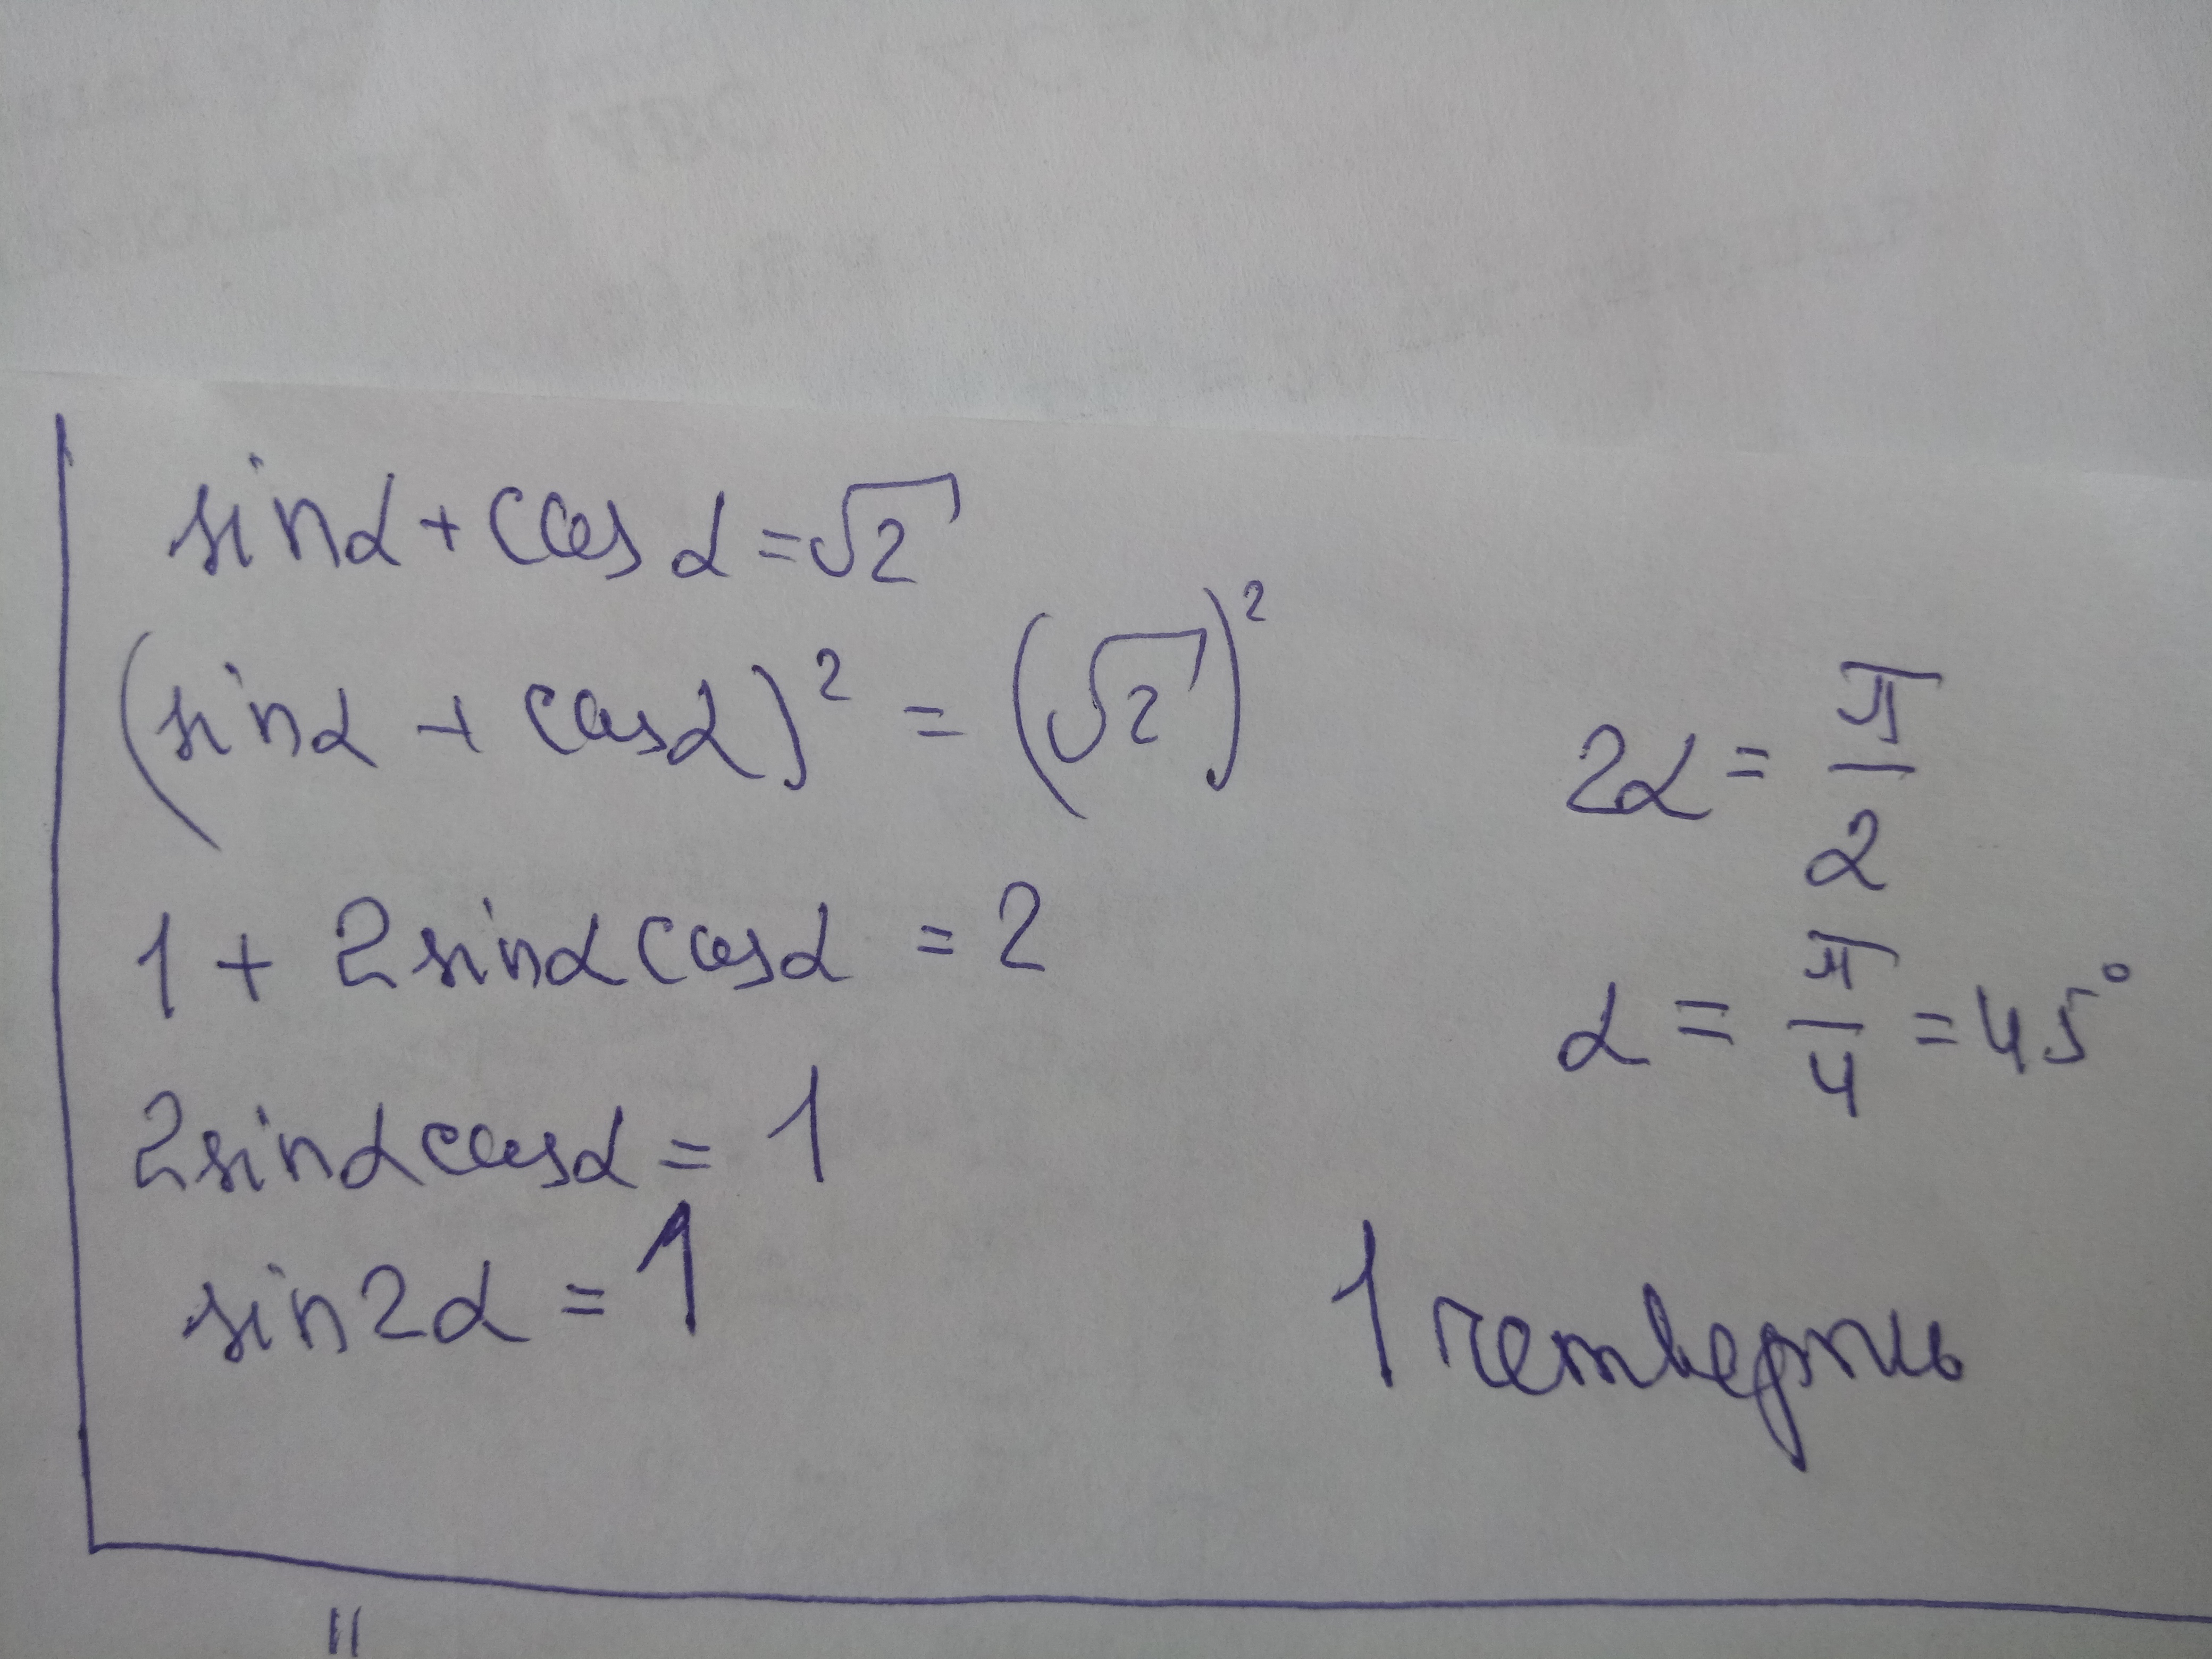 sinα + cos α = √2
(sinα + cosα)² = (√2)²
1 + 2sinα cosα = 2
2sinα cosα = 1
sin2α = 1
2α = π/2
α = π/4 = 45°
1 четверть
11